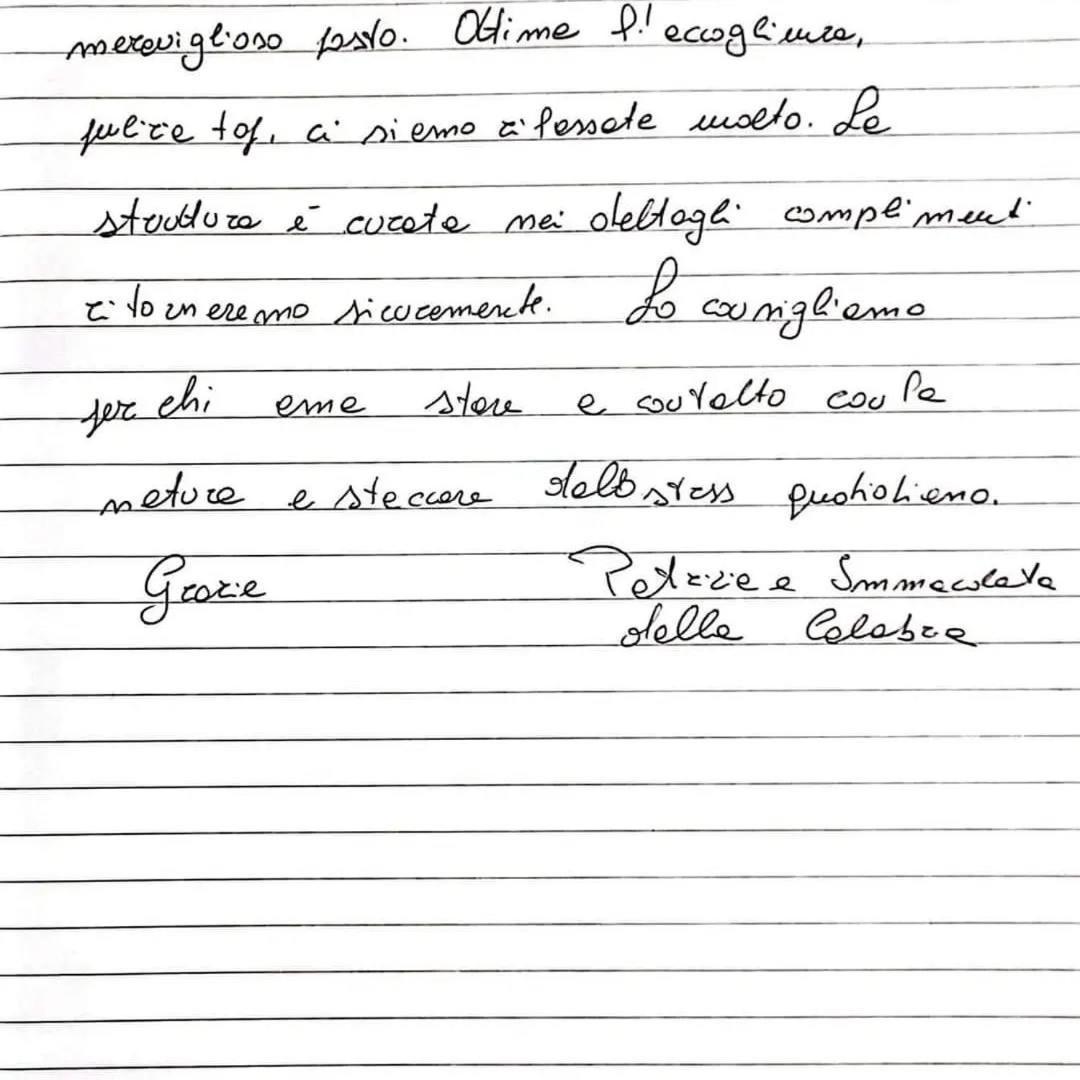 meraviglioso posto. Ottima l'accoglienza,
pulizie top, ci siamo rilassate molto. La
struttura è curata nei dettagli complimenti
ritorneremo sicuramente. Lo consigliamo
per chi ama stare a contatto con la
natura e staccare dallo stress quotidiano.
Grazie
Patrizia e Immacolata
dalla Calabria